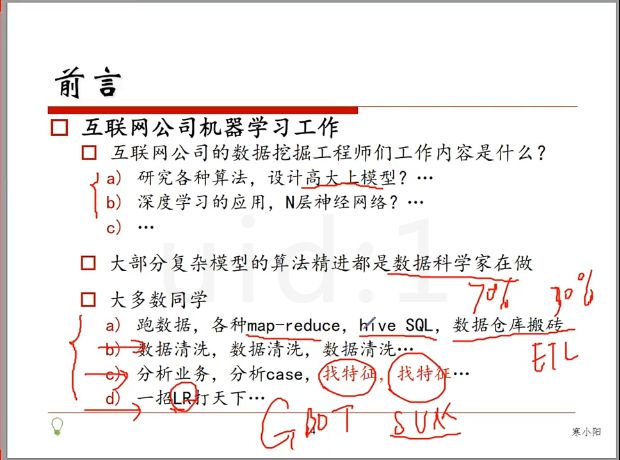 前言
互联网公司机器学习工作
互联网公司的数据挖掘工程师们工作内容是什么？
a) 研究各种算法，设计高大上模型？…
b) 深度学习的应用，N层神经网络？…
c) …
uid:1
大部分复杂模型的算法精进都是数据科学家在做
大多数同学
70% 30%
a) 跑数据，各种map-reduce，hive SQL，数据仓库搬砖
ETL
b) 数据清洗，数据清洗，数据清洗…
c) 分析业务，分析case，找特征，找特征…
d) 一招LR打天下…
GBDT SVM
寒小阳